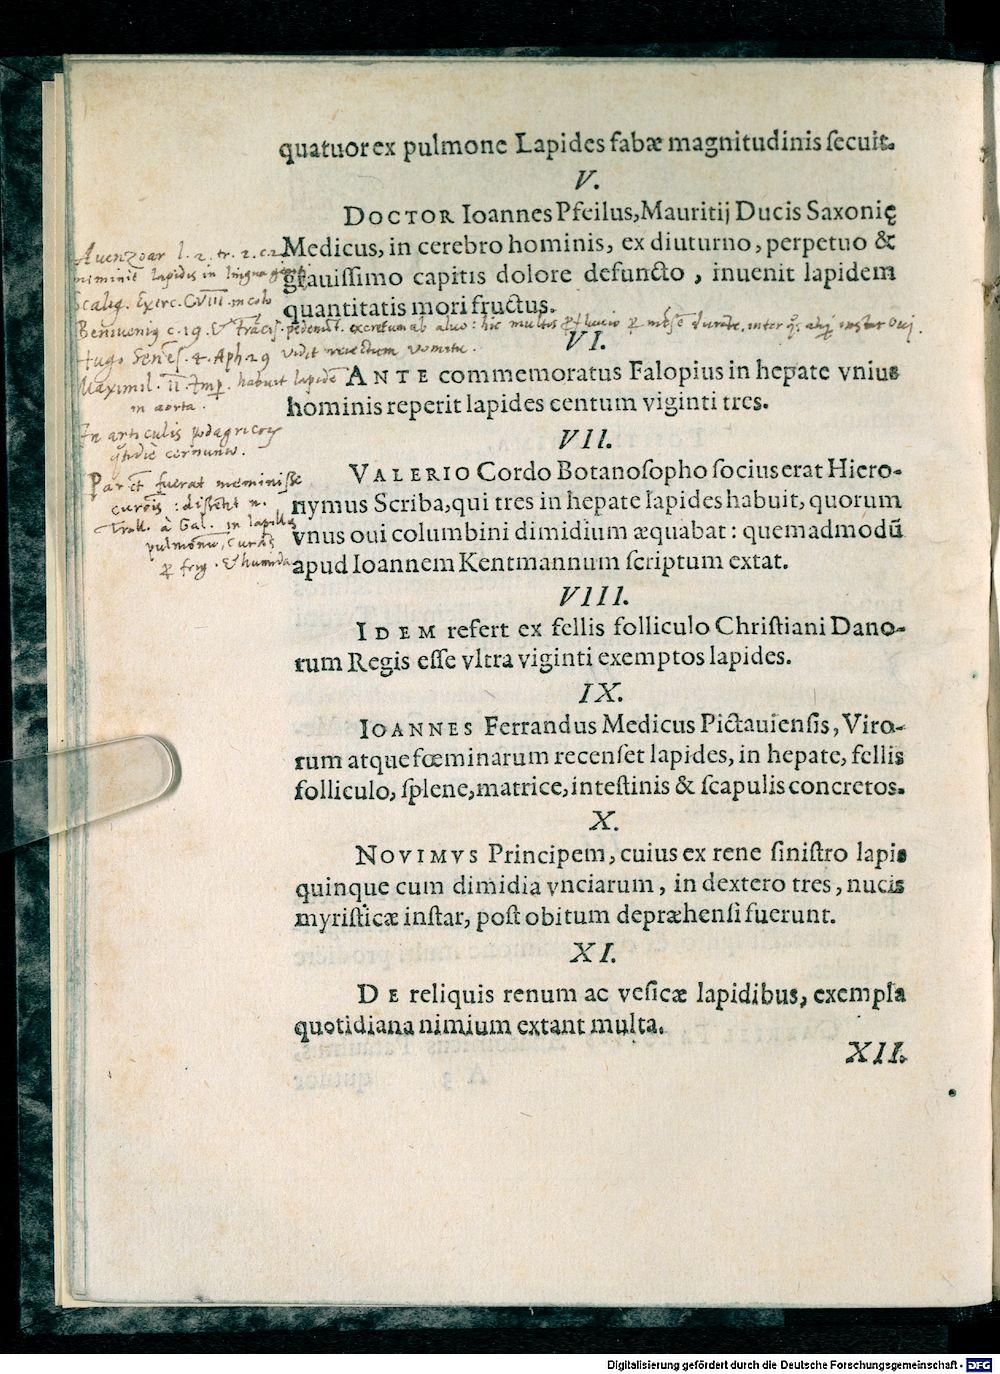 quatuor ex pulmone Lapides fabæ magnitudinis ſecuit.
V.
DOCTOR Ioannes Pfeilus, Mauritij Ducis Saxonię
Medicus, in cerebro hominis, ex diuturno, perpetuo &
grauiſſimo capitis dolore defuncto, inuenit lapidem
quantitatis mori fructus.
VI.
ANTE commemoratus Falopius in hepate vnius
hominis reperit lapides centum viginti tres.
VII.
VALERIO Cordo Botanoſopho ſocius erat Hiero-
nymus Scriba, qui tres in hepate lapides habuit, quorum
vnus oui columbini dimidium æquabat: quemadmodū
apud Ioannem Kentmannum ſcriptum extat.
VIII.
IDEM refert ex fellis folliculo Chriſtiani Dano-
rum Regis eſſe vltra viginti exemptos lapides.
IX.
IOANNES Ferrandus Medicus Pictauienſis, Viro-
rum atque fœminarum recenſet lapides, in hepate, fellis
folliculo, ſplene, matrice, inteſtinis & ſcapulis concretos.
X.
NOVIMVS Principem, cuius ex rene ſiniſtro lapis
quinque cum dimidia vnciarum, in dextero tres, nucis
myriſticæ inſtar, poſt obitum depræhenſi fuerunt.
XI.
DE reliquis renum ac veſicæ lapidibus, exempla
quotidiana nimium extant multa.
XII.
Auenzoar l. 2. tr. 2. c. 2
meminit lapidis in lingua
Scalig. Exerc. CVIII. in colo
Beniuenig c. 19.
Hugo Senes. 4. Aph. 29 vidit reiectum vomitu.
Maximil. II Imp. habuit lapidē
in aorta.
In articulis podagricorum
cernunt.
Par et fuerat meminisse
Trall. à Gal. in lapillis
& humida
Digitalisierung gefördert durch die Deutsche Forschungsgemeinschaft - DFG